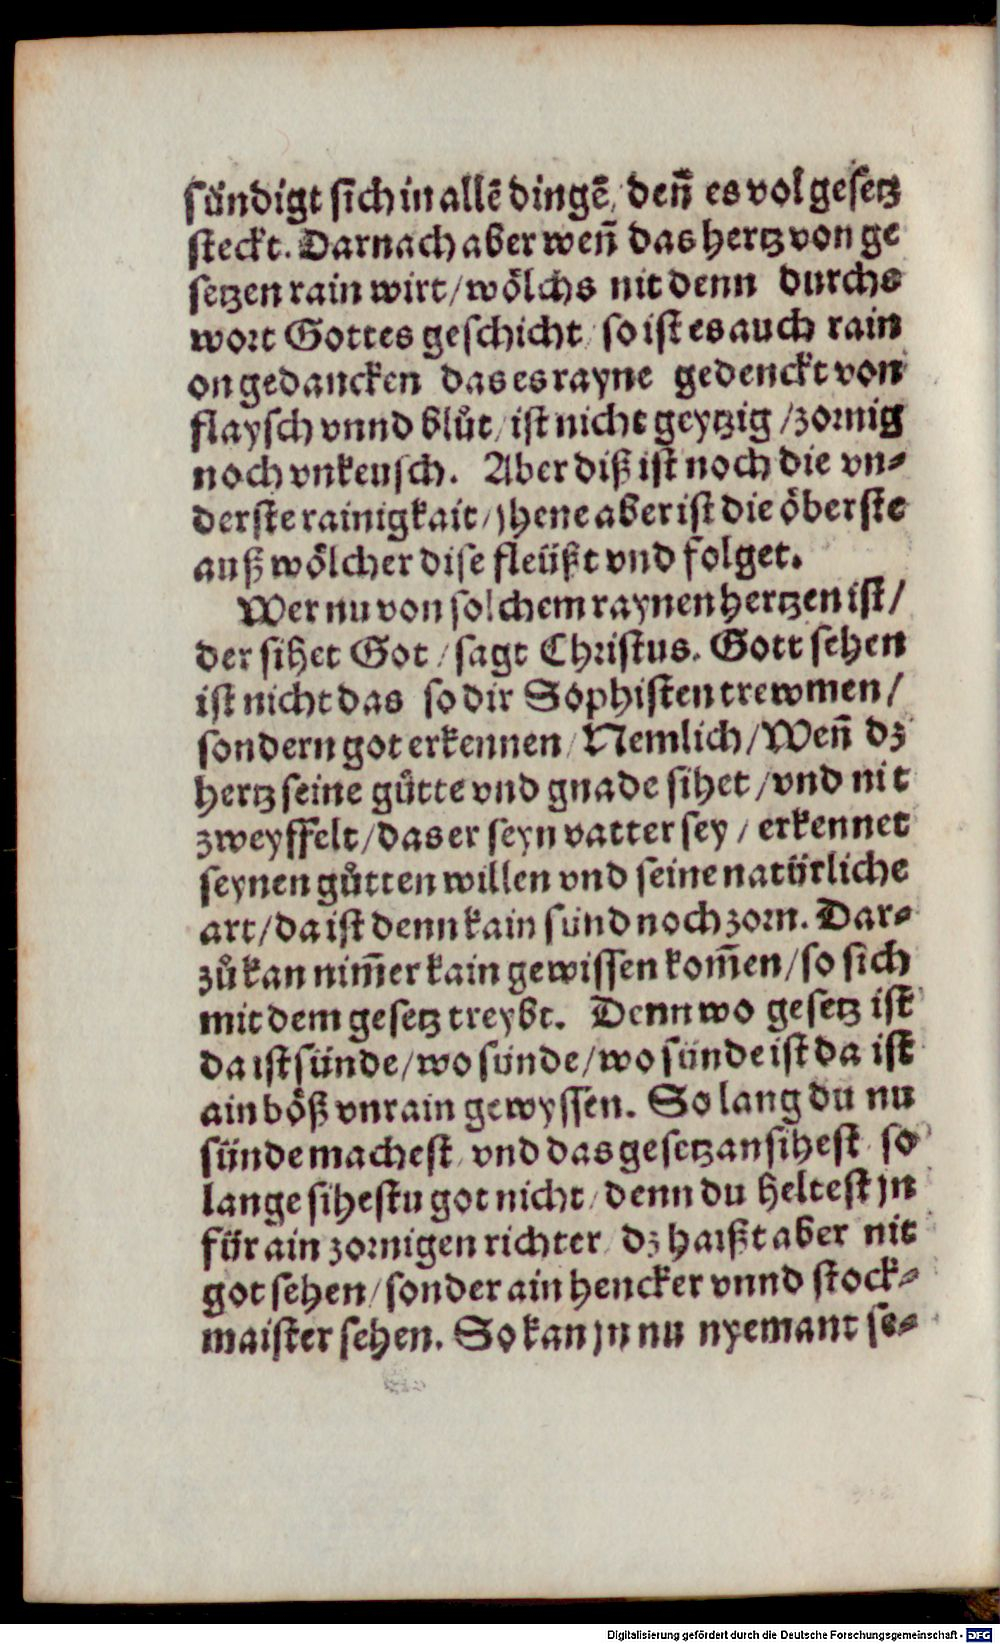 sündigt sich in allē dingē / deñ es vol gesetz
steckt. Darnach aber weñ das hertz von ge
setzen rain wirt / wölchs nit denn durchs
wort Gottes geschicht / so ist es auch rain
on gedancken das es rayne gedenckt von
flaysch vnnd blůt / ist nicht geytzig / zornig
noch vnkeusch. Aber diß ist noch die vn-
derste rainigkait / jhene aber ist die öberste
auß wölcher dise fleüßt vnd folget.
Wer nu von solchem raynen hertzen ist /
der sihet Got / sagt Christus. Gott sehen
ist nicht das so dir Sophisten trewmen /
sondern got erkennen / Nemlich / Weñ dz
hertz seine gůtte vnd gnade sihet / vnd nit
zweyffelt / das er seyn vatter sey / erkennet
seynen gůtten willen vnd seine natürliche
art / da ist denn kain sünd noch zorn. Dar-
zů kan nim̄er kain gewissen kom̄en / so sich
mit dem gesetz treybt. Denn wo gesetz ist
da ist sünde / wo sünde / wo sünde ist da ist
ain böß vnrain gewyssen. So lang du nu
sünde machest / vnd das gesetz ansihest / so
lange sihestu got nicht / denn du heltest jn
für ain zornigen richter / dz haißt aber nit
got sehen / sonder ain hencker vnnd stock-
maister sehen. So kan jn nu nyemant se-
Digitalisierung gefördert durch die Deutsche Forschungsgemeinschaft - DFG